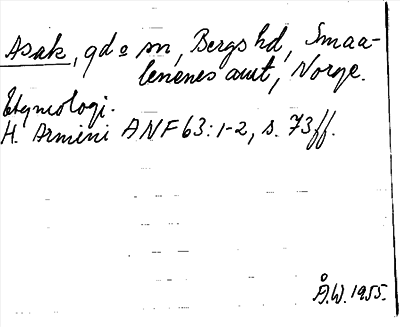 Asak, gd o sn, Bergs hd, Smaa-
lenenes amt, Norge.
Etymologi.
H. Armini ANF 63:1-2, s. 73ff.
Å.W. 1955.